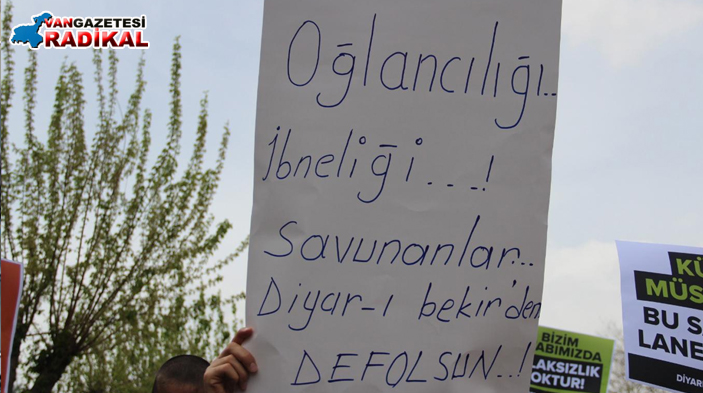 VANGAZETESİ
RADİKAL
Oğlancılığı..
İbneliği...!
Savunanlar..
Diyar-ı bekir'den
DEFOLSUN..!
BİZİM
ABIMIZDA
LAKSIZLIK
OKTUR!
KÜ
MÜS
BU SA
LANE
DİYAR